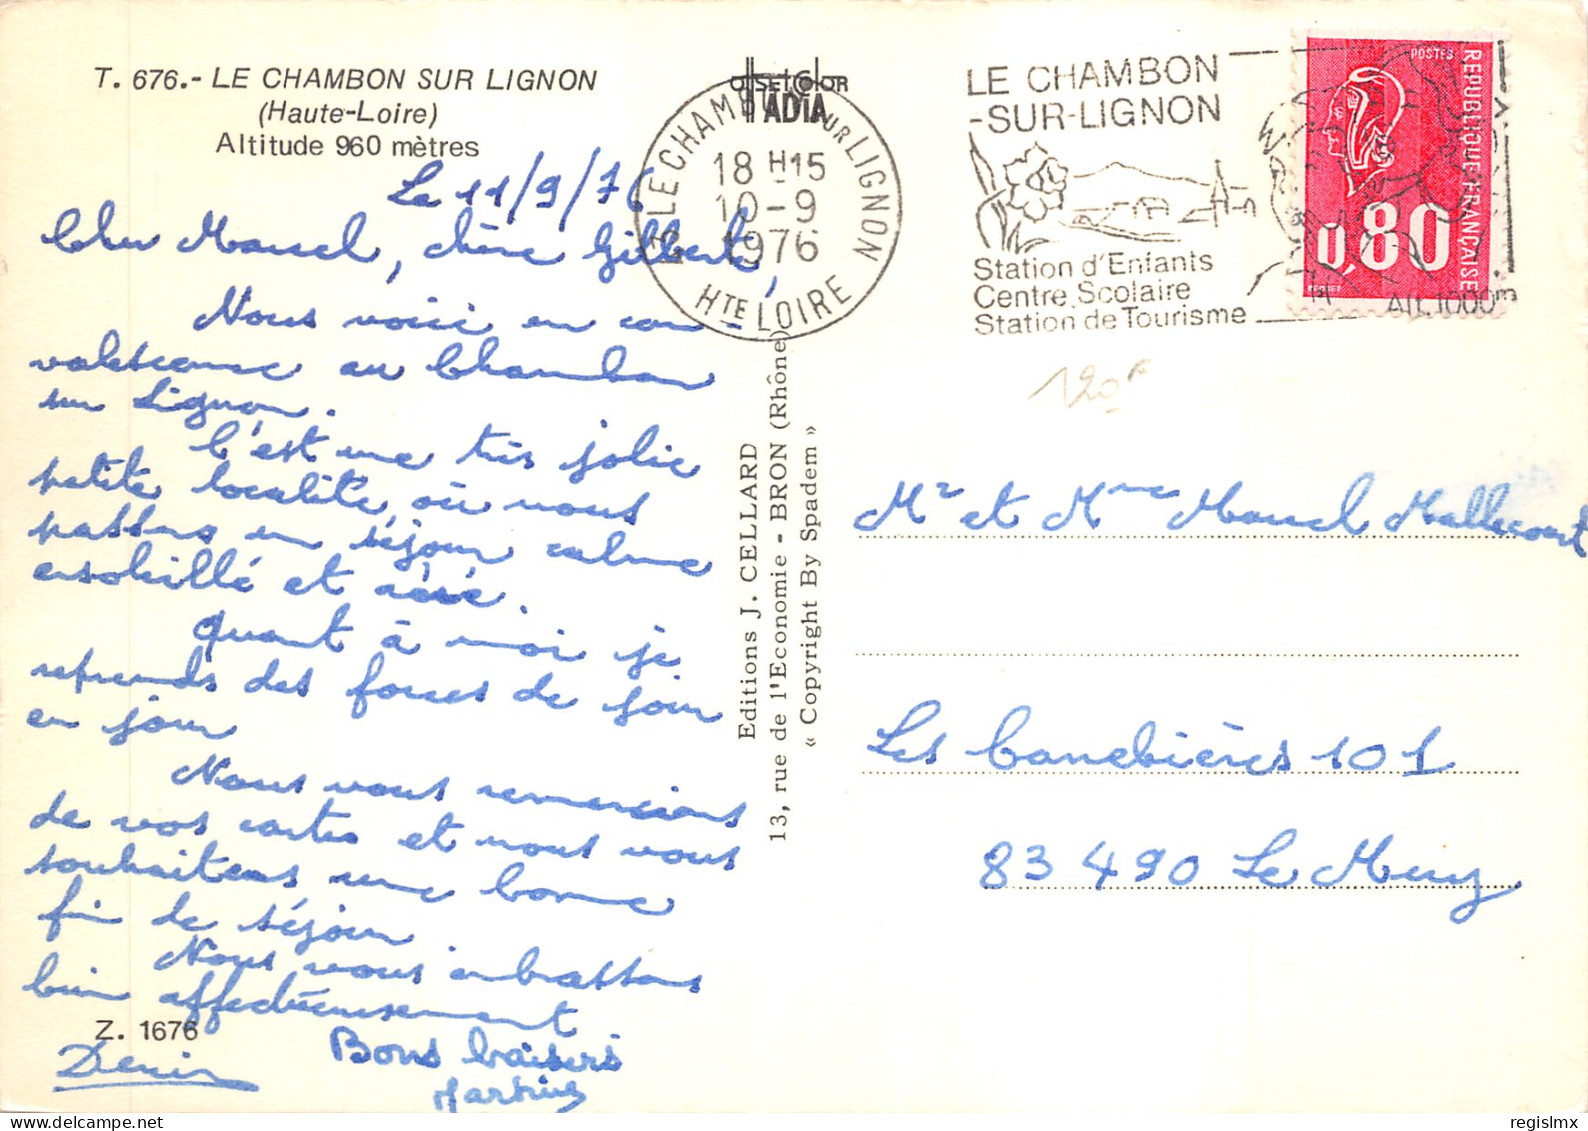 T. 676.- LE CHAMBON SUR LIGNON
(Haute-Loire)
Altitude 960 mètres
Le 11/9/76
Cher Marcel, chère Gilberte,
Nous voici en con-
valescence au Chambon
sur Lignon.
C'est une très jolie
petite localité, où nous
passons un séjour calme
ensoleillé et aéré.
Quant à moi je
reprends des forces de jour
en jour
Nous vous remercions
de vos cartes et nous vous
souhaitons une bonne
fin de séjour
Nous vous embrassons
bien affectueusement
Z. 1676
Denis
Bons baisers
Editions J. CELLARD
13, rue de l'Economie - BRON (Rhône)
« Copyright By Spadem »
OffsetColor
ADIA
43 LE CHAMBON SUR LIGNON
18 H 15
10-9
1976
HTE LOIRE
LE CHAMBON
-SUR-LIGNON
Station d'Enfants
Centre Scolaire
Station de Tourisme
ALT. 1000m
POSTES
REPUBLIQUE FRANÇAISE
0,80
BEQUET
120F
Mr et Mme Marcel Mallecourt
Les Canebières 101
83 490 Le Muy
regislmx